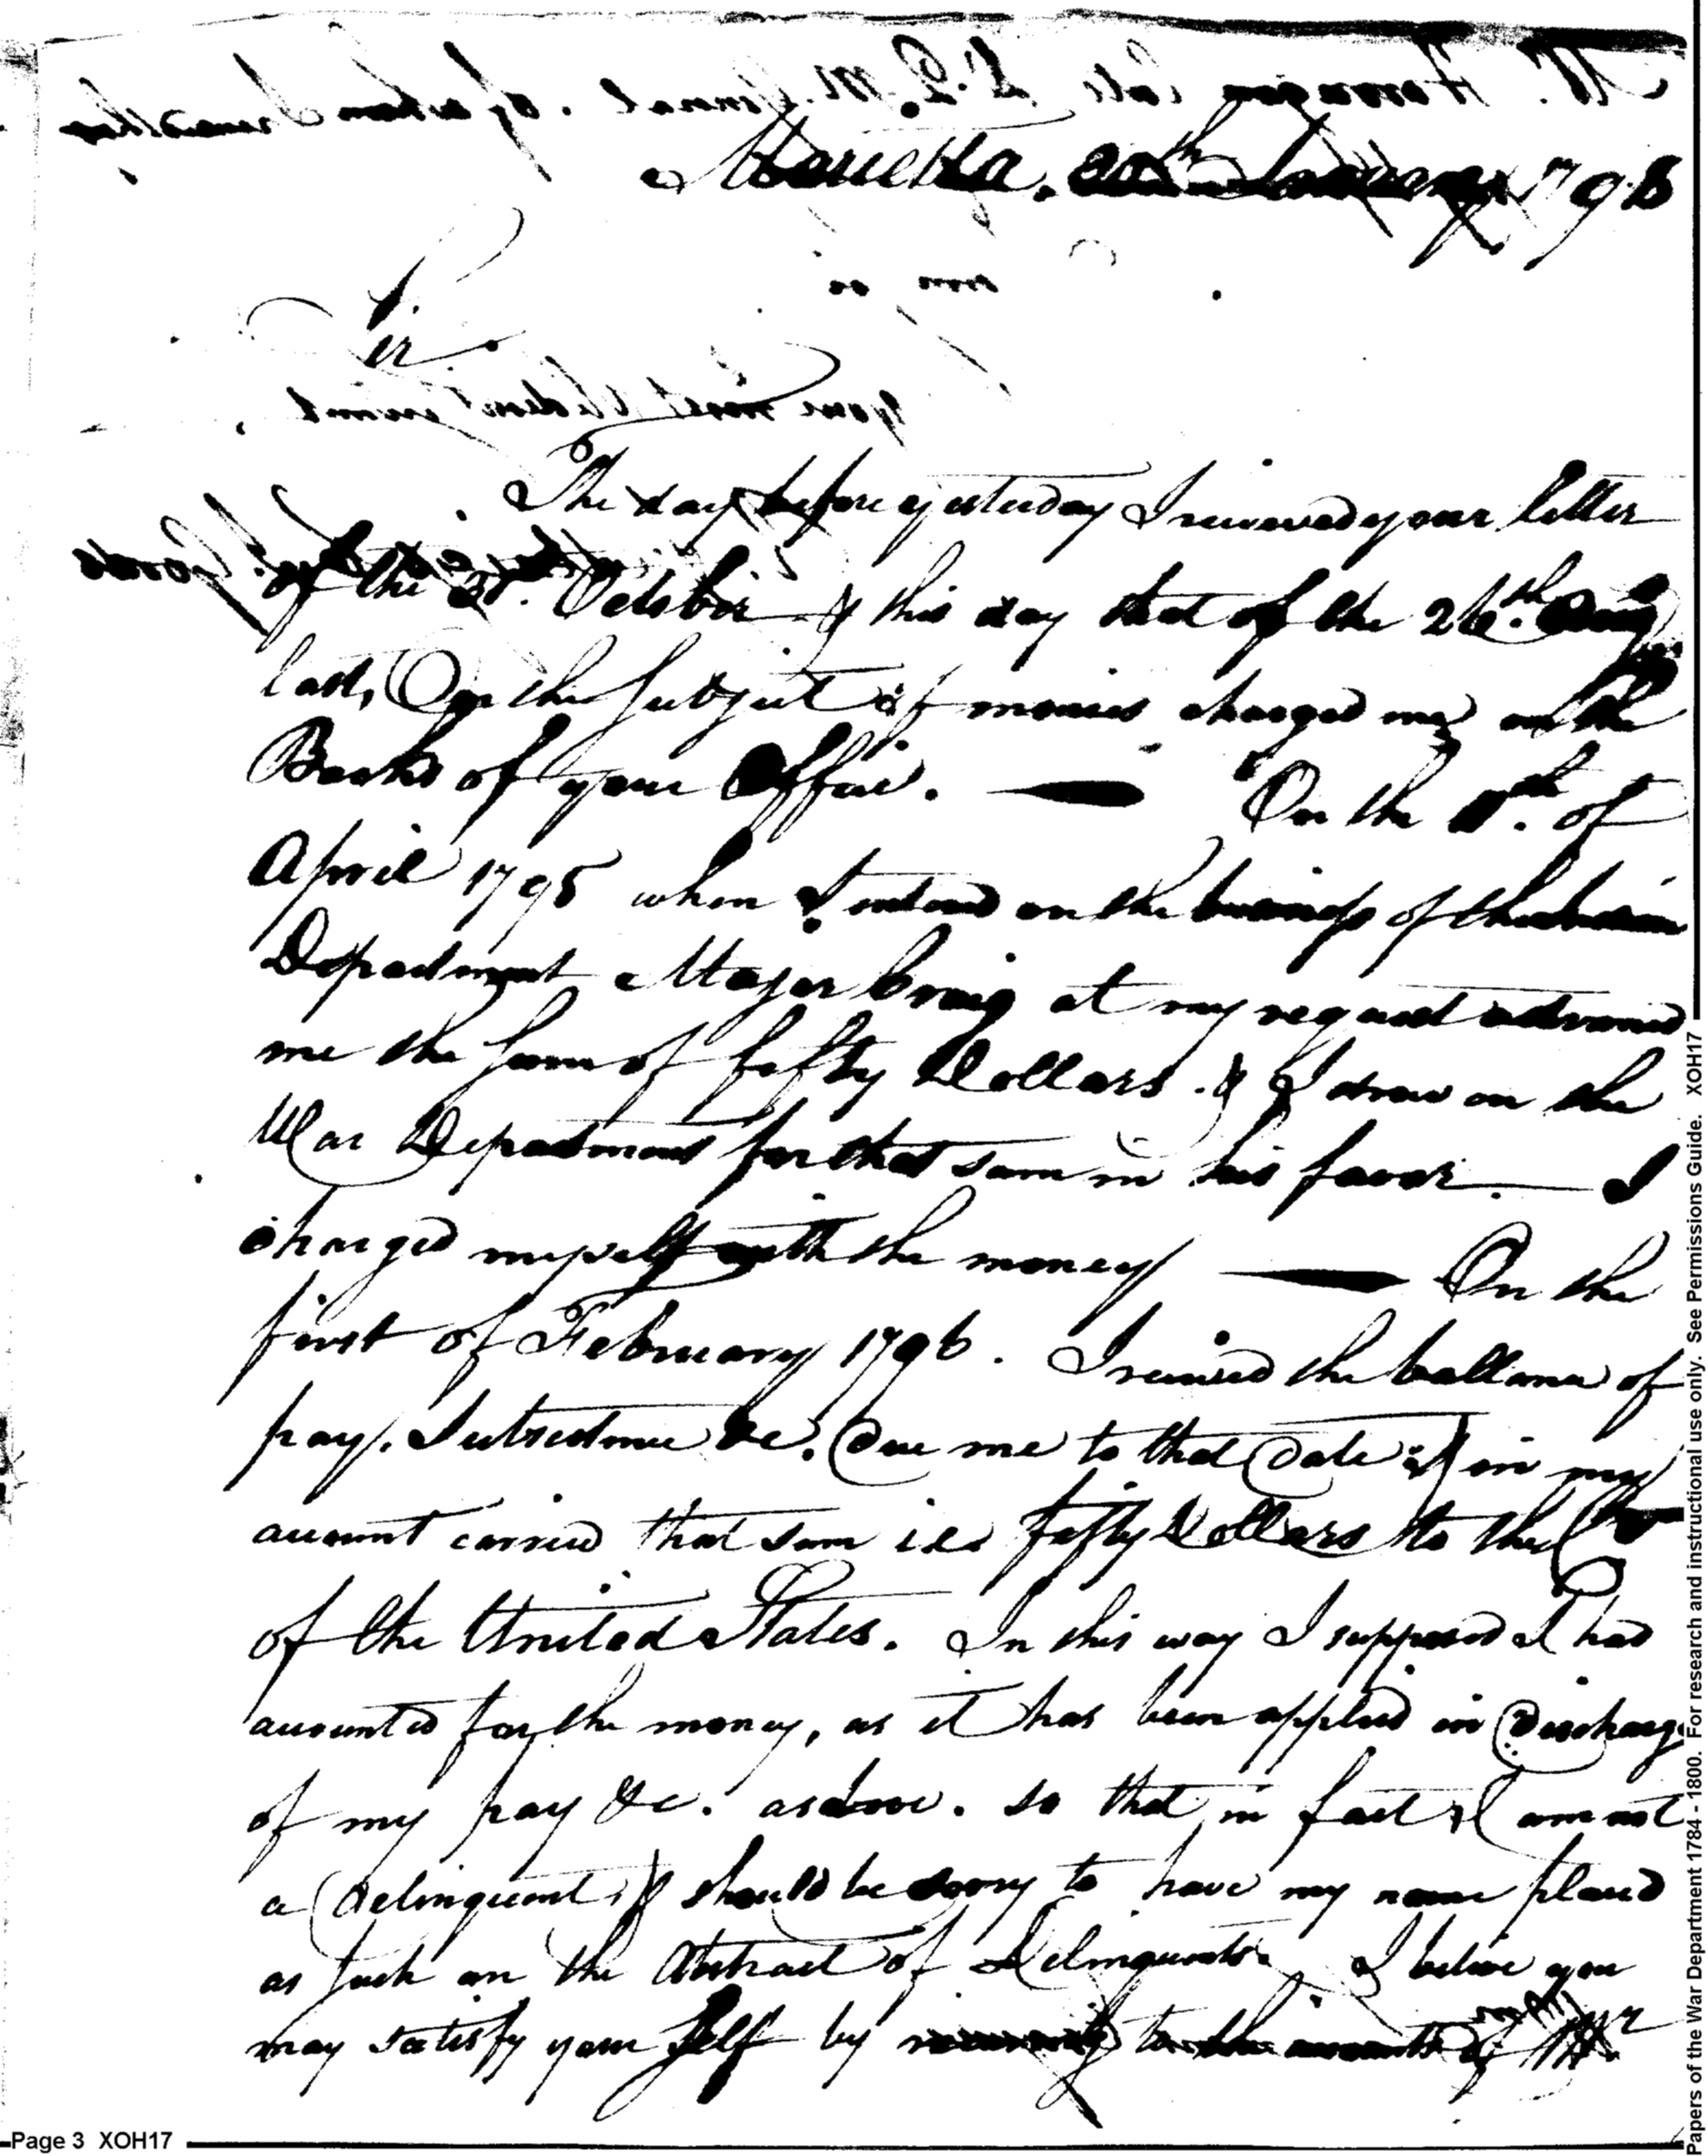 Marietta. 20th January 1798
Sir.
The day before yesterday I received your letter
of the 31st. October & this day that of the 26th.
last, On the Subject of monies charged me on the
Books of your Office. — On the of
April 1795 when I entered on the business of the
Department Major Craig at my request advanced
me the Sum of fifty Dollars. & I drew on the
War Department for that sum in his favor. — I
charged myself with the money — On the
first of February 1796. I received the ballance of
pay. Subsistence &c. due me to that date & in my
account carried that sum i.e. fifty Dollars to the Cr
of the United States. In this way I supposed I had
accounted for the money, as it has been applied in discharge
of my pay &c. as above. so that in fact I am not
a delinquent, & should be sorry to have my name placed
as Such on the Abstract of Delinquents. I believe you
may satisfy your Self by to the accounts of Mr
Page 3 XOH17
Papers of the War Department 1784 - 1800. For research and instructional use only. See Permissions Guide. XOH17